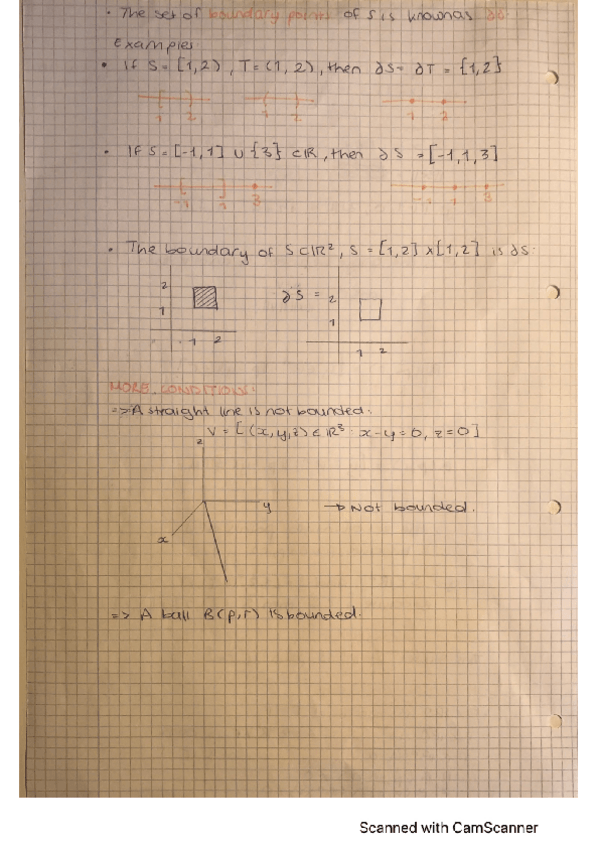 · The set of boundary points of S is known as ∂S.
Examples
· If S = [1,2), T = (1,2), then ∂S = ∂T = {1,2}
1 2 1 2 1 2
· If S = [-1,1] ∪ {3} ⊂ ℝ, then ∂S = [-1,1,3]
-1 1 3 -1 1 3
· The boundary of S ⊂ ℝ², S = [1,2] x [1,2] is ∂S.
2 ∂S = 2
1 1
1 2 1 2
MORE CONDITIONS:
=> A straight line is not bounded.
V = [(x,y,z) ∈ ℝ³ x-y=0, z=0]
z
y → Not bounded.
x
=> A ball B(p,r) is bounded.
Scanned with CamScanner